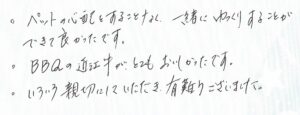 ○ ペットの心配をすることなく、一緒にゆっくりすることが
できて良かったです。
○ BBQの近江牛が、とてもおいしかったです。
○ いろいろ親切にしていただき、有難うございました。